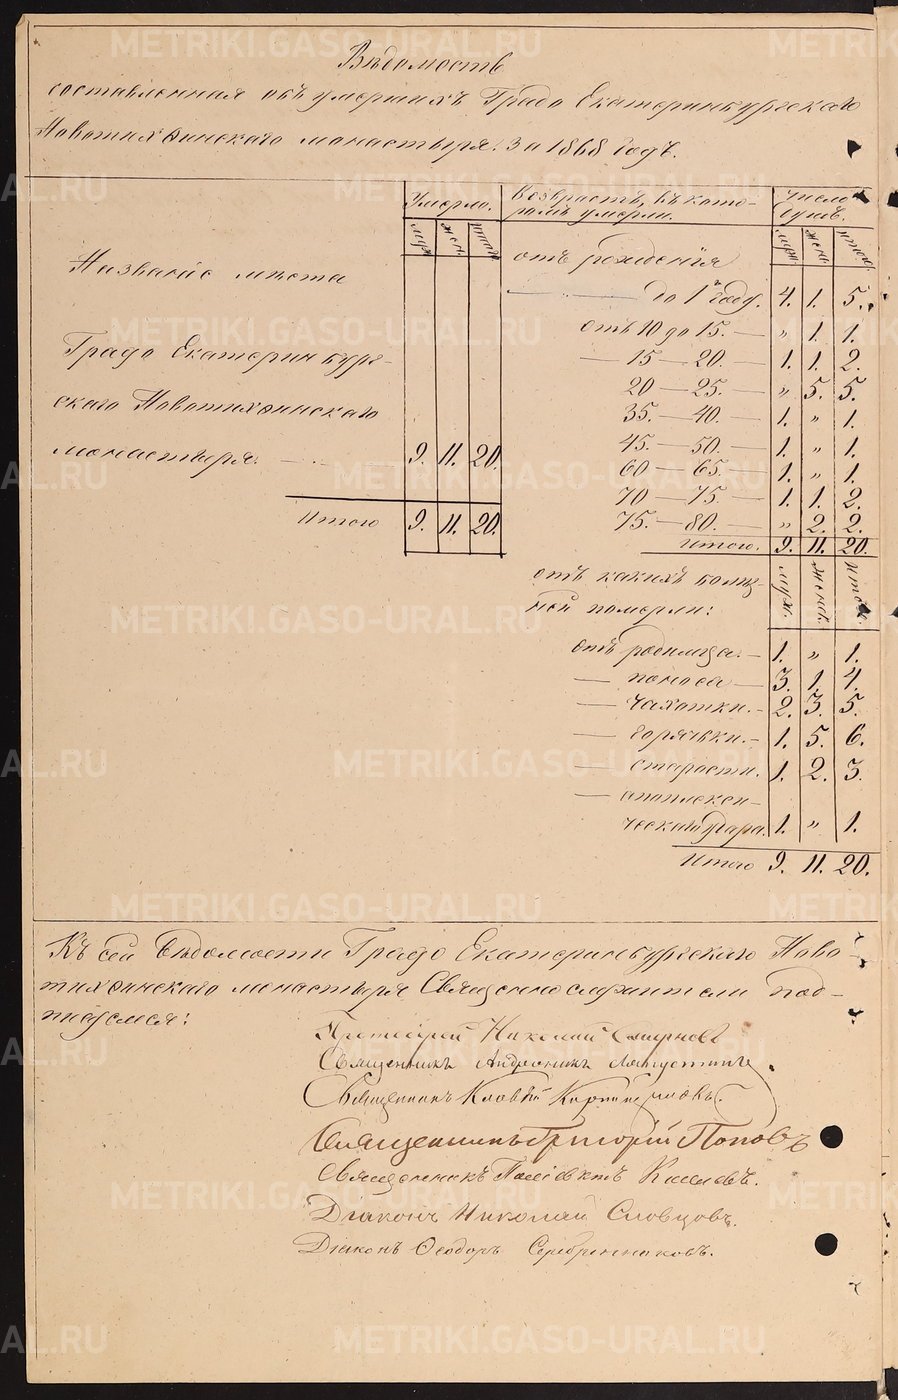 Вѣдомость
составленная объ умершихъ Градо Екатеринбургскаго
Новотихвинскаго монастыря. За 1868 Годъ.
Умерло. Возврастъ, въ кото-
ромъ умерли. Число
душъ.
муж. жен. итого муж. жен. итого.
Названіе мѣста
отъ рожденія
до 1го году. 4. 1. 5.
отъ 10 до 15. — „ 1. 1.
— 15 — 20. — 1. 1. 2.
20 — 25. — „ 5. 5.
35. — 40. — 1. „ 1.
45. — 50. — 1. „ 1.
60 — 65. 1. „ 1.
70 — 75. — 1. 1. 2.
75. — 80. — „ 2. 2.
Итого. 9. 11. 20.
Градо Екатеринбург-
скаго Новотихвинскаго
монастыря. 9. 11. 20.
Итого 9. 11. 20.
отъ какихъ болѣз-
ней померли: муж. женс. итого.
отъ родимца. — 1. „ 1.
— поноса — 3. 1. 4.
— чахотки. — 2. 3. 5.
— горячьки. — 1. 5. 6.
— старости. 1. 2. 3.
— апоплекси-
ческаго удара. 1. „ 1.
Итого 9. 11. 20.
Къ сей Вѣдомости Градо Екатеринбургскаго Ново-
тихвинскаго монастыря Священнослужители под-
писуемся:
Протоіерей Николай Смирновъ
Священникъ Андроникъ
Священникъ
Священникъ Григорій Поповъ
Священникъ
Діаконъ Николай Словцовъ.
Діаконъ Ѳеодоръ Серебренниковъ.
METRIKI.GASO-URAL.RU